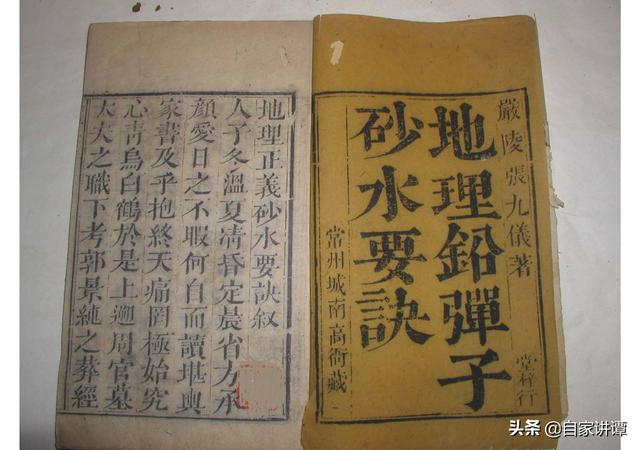 嚴陵張九儀著
地理鉛彈子
砂水要訣
常州城南高衙藏
堂梓行
地理正義砂水要訣叙
人子冬溫夏凊昏定晨省方承
顔愛日之不暇何自而讀堪輿
家書及乎抱終天痛罔極始究
心靑烏白鶴於是上遡周官墓
大夫之職下考郭景純之葬經
头条 @自家讲谭